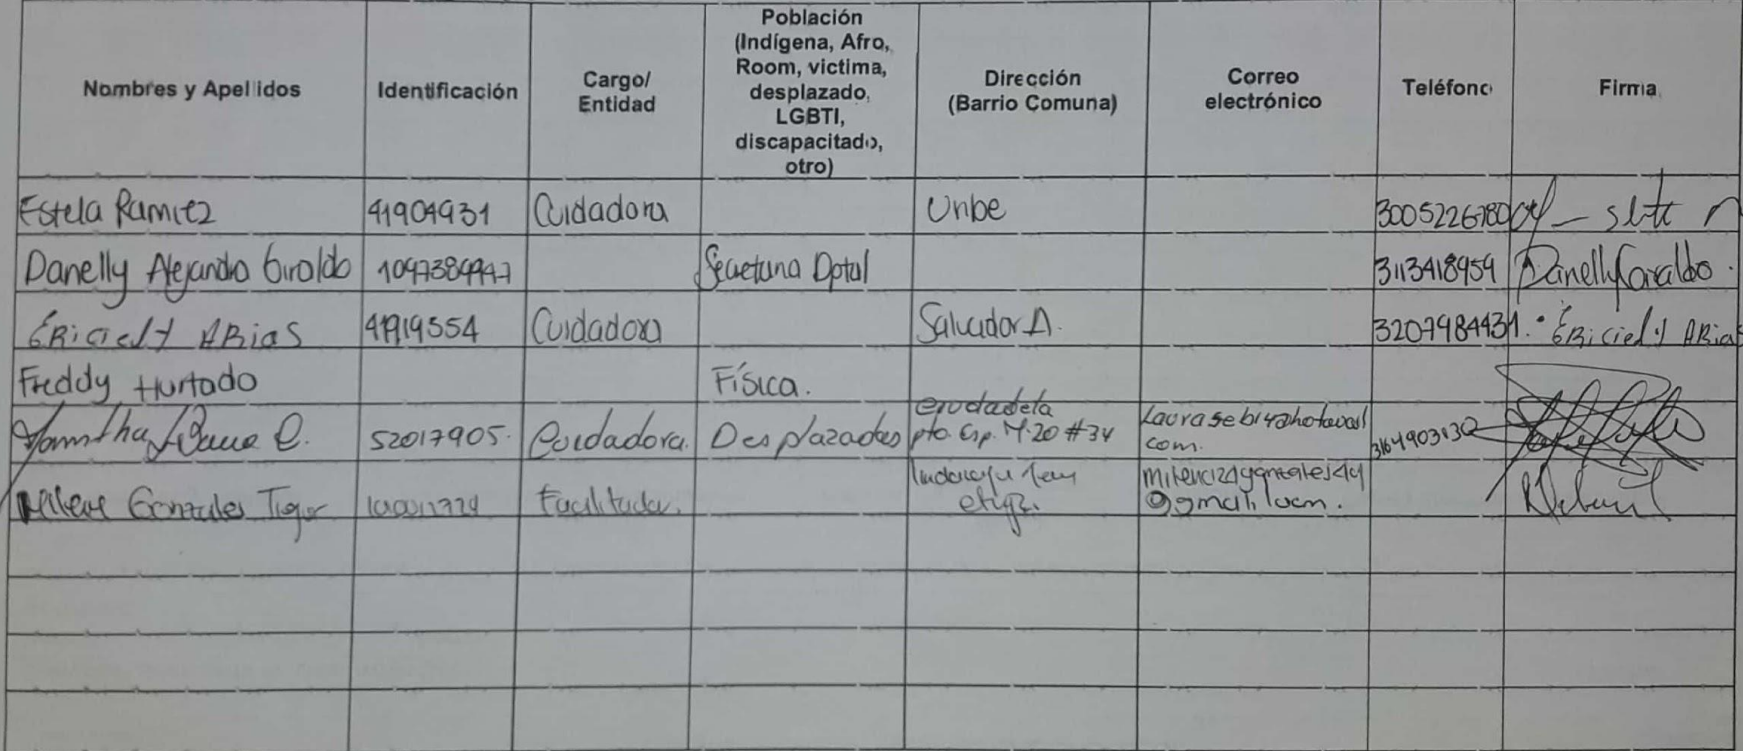 Nombres y Apellidos Identificación Cargo/ Entidad Población (Indígena, Afro, Room, victima, desplazado, LGBTI, discapacitado, otro) Dirección (Barrio Comuna) Correo electrónico Teléfono Firma
Estela Ramirez 41904931 Cuidadora Uribe 3005226780
Danelly Alejandra Giraldo 1097389947 Secretaria Dptal 3113418959 Danelly Giraldo.
Ériciely ARias 41919554 Cuidadora Salvador A. 3207984431. Ériciely ARias
Freddy Hurtado Física.
52017905. Cuidadora. Desplazados ciudadela pto. Esp. M.20 #34 com.
Gonzales Facilitador.